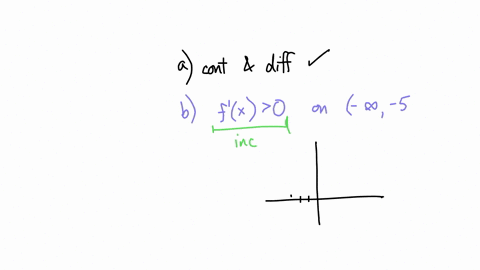 a) cont & diff ✓
b) f'(x) > 0 on (-∞, -5
inc